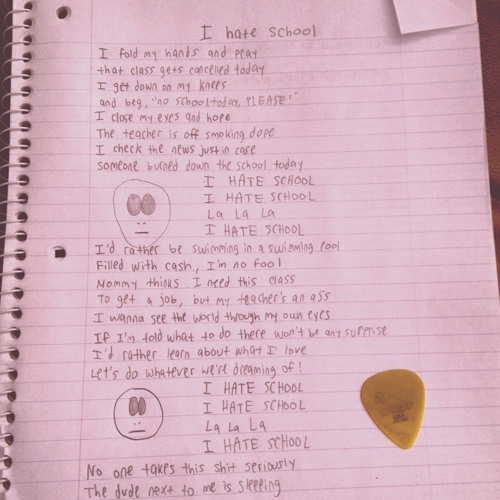 I hate School
I fold my hands and pray
that class gets cancelled today
I get down on my knees
and beg, "no school today, PLEASE!"
I close my eyes and hope
The teacher is off smoking dope
I check the news just in case
someone burned down the school today
I HATE SCHOOL
I HATE SCHOOL
La La La
I HATE SCHOOL
I'd rather be swimming in a swimming pool
Filled with cash, I'm no fool
Mommy thinks I need this class
To get a job, but my teacher's an ass
I wanna see the world through my own eyes
If I'm told what to do there won't be any surprise
I'd rather learn about what I love
Let's do whatever we're dreaming of!
I HATE SCHOOL
I HATE SCHOOL
La La La
I HATE SCHOOL
No one takes this shit seriously
The dude next to me is sleeping